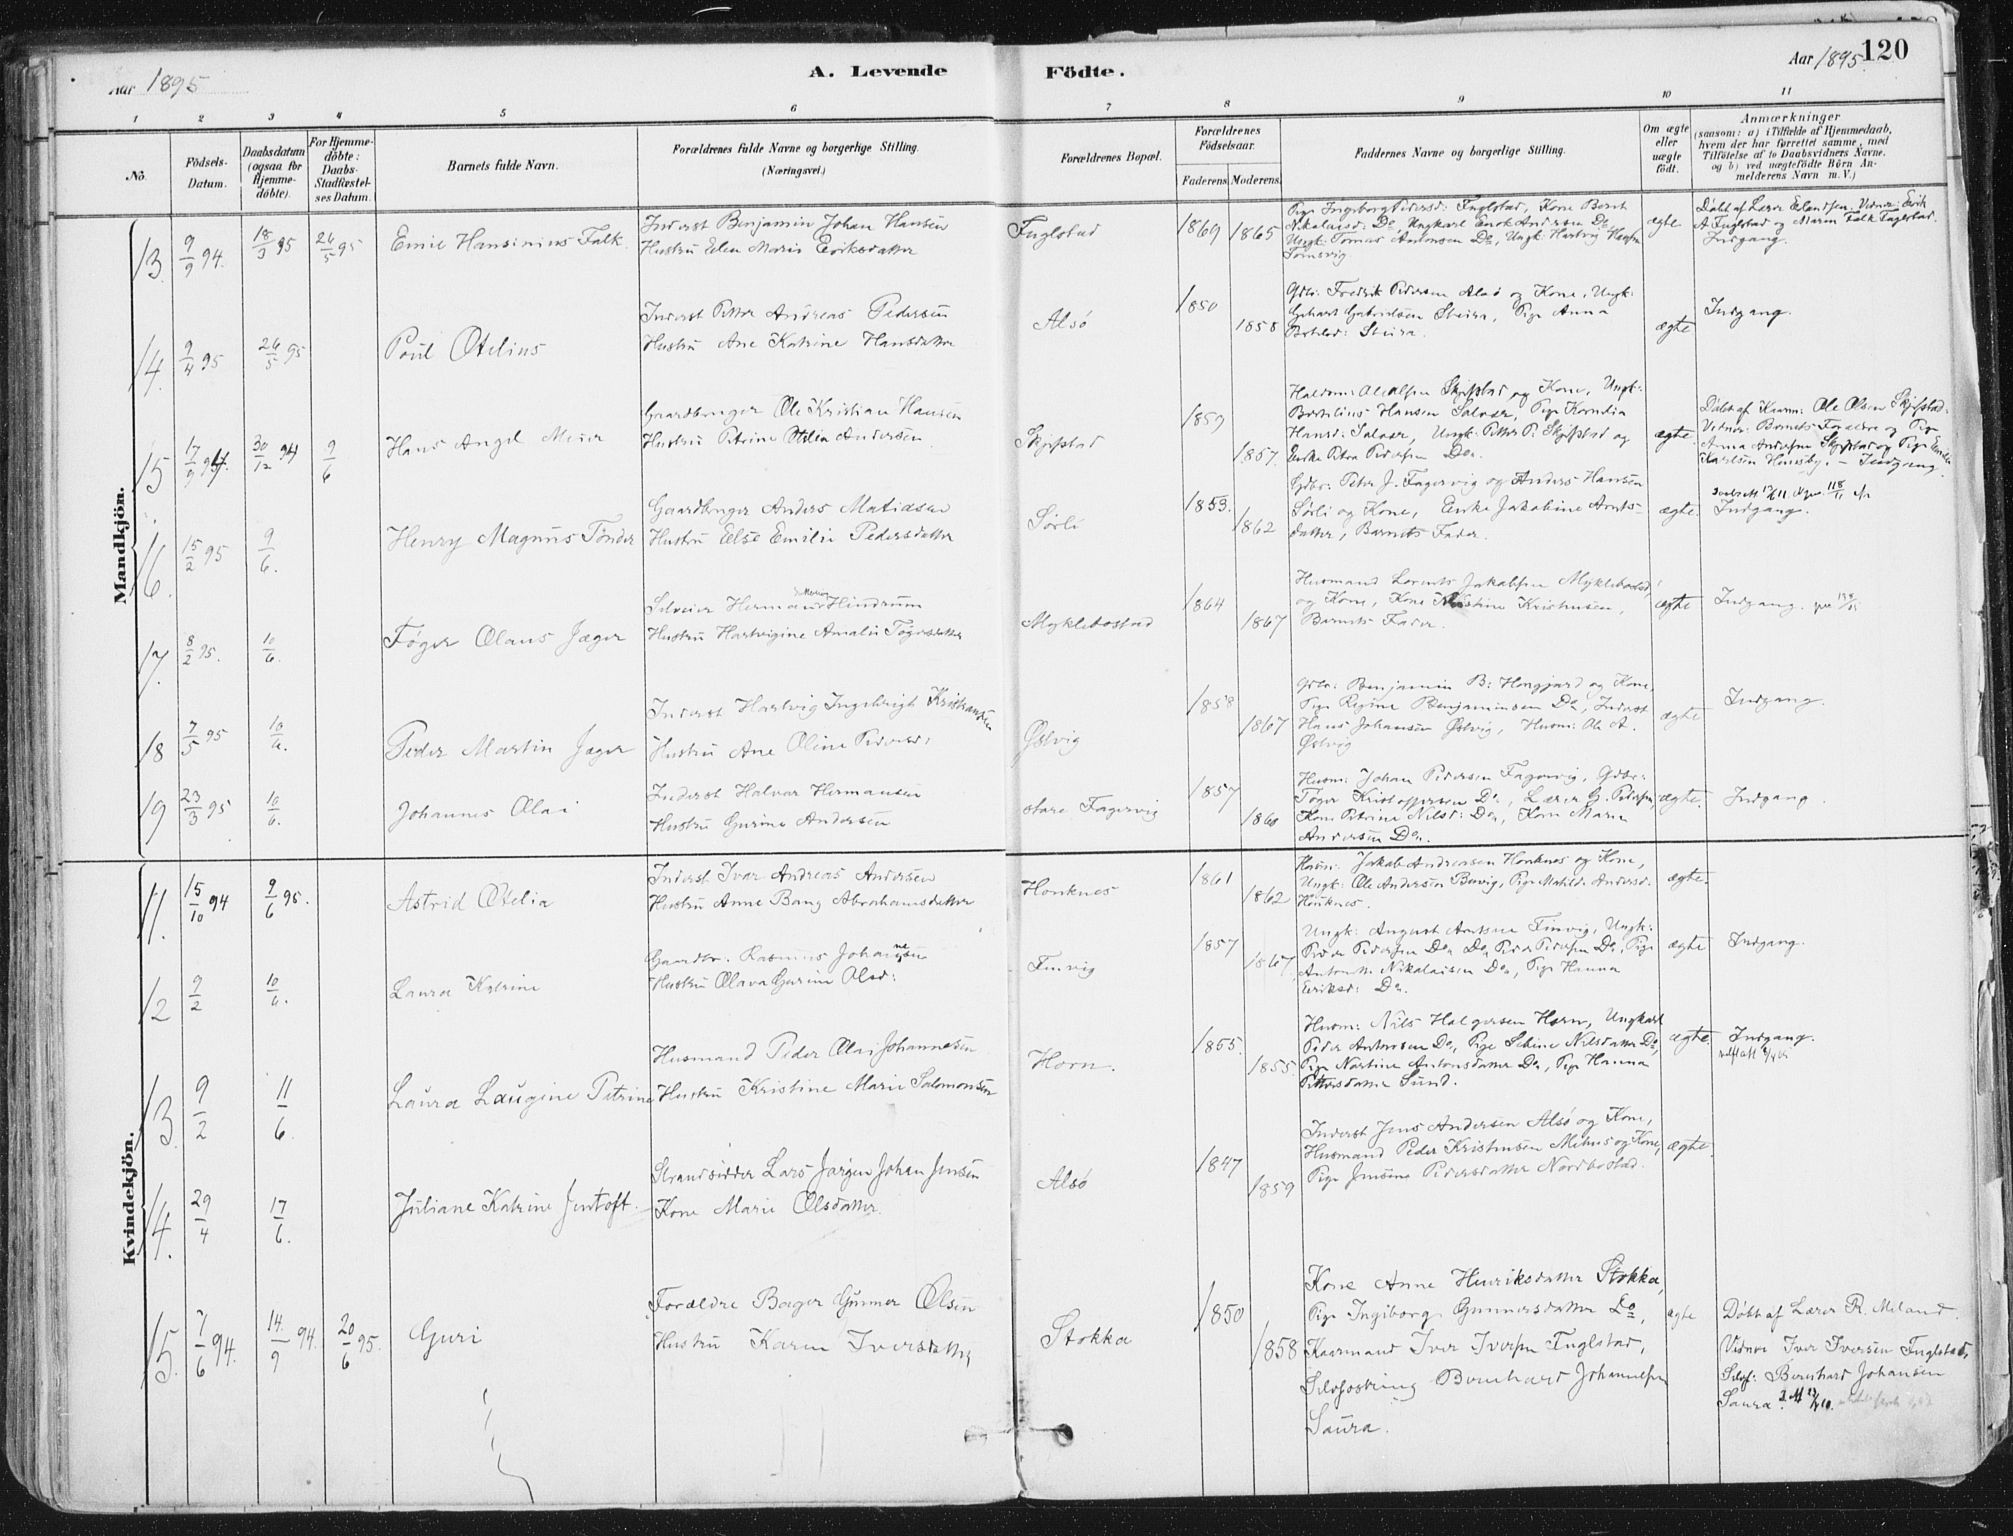 Aar 1895
A. Levende Födte.
Aar 1895. 120
1 2 3 4 5 6 7 8 9 10 11
No. Födsels-Datum. Daabsdatum (ogsaa for Hjemme-döbte). For Hjemme-döbte: Daabs-Stadfæstel-ses Datum. Barnets fulde Navn. Forældrenes fulde Navne og borgerlige Stilling. (Næringsvei.) Forældrenes Bopæl. Forældrenes Födselsaar. Faderens. Moderens. Faddernes Navne og borgerlige Stilling. Om ægte eller uægte födt. Anmærkninger (saasom: a) i Tilfælde af Hjemmedaab, hvem der har forrettet samme, med Tilföielse af to Daabsvidners Navne. og b) ved uægtefödte Börn An-melderens Navn m. V.)
Mandkjön.
13. 9/9 94. 18/3 95 26/5 95 Emil Hansinius Falk.
Inderst Benjamin Johan Hansen
Hustru Elen Marie Eriksdatter
Fuglstad 1869 1865
Pige Ingeborg Pedersd: Fuglstad, Kone Berit
Nikolaisd: Do, Ungkarl Enok Andersen Do
Ungk: Tomas Antonsen Do, Ungk: Hartvig Hansen
Tomsvig
ægte
Døbt af Lærer Erlandsen. Vidner: Erik
A Fuglstad og Maren Falk Fuglstad.
Indgang.
14. 9/4 95 26/5 95 Poul Otelius
Inderst Petter Andreas Pedersen
Hustru Ane Katrine Hansdatter
Alsø 1850 1858
Gdbr: Fredrik Pedersen Alsø og Kone, Ungk:
Gerhart Gabrielsen Steiro, Pige Anna
Steiro.
ægte Indgang.
15. 17/9 94. 30/12 94 9/6 Hans Angel Meier
Gaardbruger Ole Kristian Hansen
Hustru Petrine Otelia Andersen
Skjefstad 1859 1857.
Skjefstad og Kone, Ungk:
Bertelius Hansen Salvær, Pige Kornelia
Hansd: Salvær, Ungk: Petter P: Skjefstad og
Enke Petra Pedersen Do.
ægte.
Døbt af Kaarm: Ole Olsen Skjefstad.
Vidner: Barnets Forældre og Pige
Anna Andersen Skjefstad og Pige
Karlsen Hemsby. – Indgang.
16. 15/2 95 9/6. Henry Magnus Tønder
Gaardbruger Anders Matiasen
Hustru Else Emilie Pedersdatter
Sørli 1853. 1862
Gdbr: Peter J. Fagervig og Anders Hansen
Sørli og Kone, Enke Jakobine Arnts-
datter, Barnets Fader.
ægte. Indgang.
17. 8/2 95. 10/6. Føger Olaus Jæger
Selveier Herman Hindrum
Hustru Hartvigine Amalie Tøgersdatter
Myklebostad 1864 1867
Husmand Lorents Jakobsen Myklebostad,
og Kone, Kone Kristine Kristensen,
Barnets Fader.
ægte Indgang.
18 7/5 95 10/6. Peder Martin Jæger
Inderst Hartvig Ingebrigt Kristiansen
Hustru Ane Oline Pedersd:
Østvig 1858 1867
Gdbr: Benjamin B: Hongjord og Kone,
Pige Regine Benjaminsen Do, Inderst
Hans Johansen Østvig, Husm: Ole A.
Østvig
ægte Indgang.
19 23/3 95 10/6. Johannes Olai
Inderst Halvar Hermansen
Hustru Gurine Andersen
store Fagervig 1857 1860
Husm: Johan Pedersen Fagervig, Gdbr:
Tøger Kristoffersen Do, Lærer G. Petersen,
Kone Petrine Nilsd: Do, Kone Maren
Andersen Do.
ægte. Indgang.
Kvindekjön.
11. 15/10 94 9/6 95. Astrid Otelia
Inderst Ivar Andreas Andersen
Hustru Anne Bang Abrahamsdatter
Honknes 1861 1862
Jakob Andreasen Honknes og Kone,
Ungk: Ole Andersen Bervig, Pige Matilde Andersd:
Honknes.
ægte.
12 9/2 10/6. Laura Katrine
Gaardbr. Rasmus Johannesen
Hustru Olava Gurine Olsd:
Finvig 1857 1867
Ungk: August Arntsen Finvig, Ungk:
Peder Pedersen Do Do Peder Pedersen Do, Pige
Antonette Nikolaisen Do, Pige Hanna
Eriksd: Do.
ægte Indgang.
13. 9/2 11/6 Laura Laugine Petrine
Husmand Peder Olai Johannesen
Hustru Kristine Marie Salomonsen
Horn. 1855. 1855
Husm: Nils Holgersen Horn, Ungkarl
Peder Antonsen Do, Pige Sabine Nilsdatter Do,
Pige Martine Antonsdatter Do, Pige Hanna
Pettersdatter Sund.
ægte. Indgang.
14. 29/4 17/6. Juliane Katrine Jentoft.
Strandsidder Lars Jørgen Johan Jensen
Kone Marie Olsdatter.
Alsø 1847 1859
Inderst Jens Andersen Alsø og Kone,
Husmand Peder Kristensen Mehus og Kone,
Pige Jensine Pedersdatter Nordbostad.
ægte.
15. 7/6 94. 14/9 94. 20/6 95. Guri
Forældre Bager Gunner Olsen
Hustru Karen Iversdatter
Stokka 1850 1858
Kone Anne Henriksdatter Stokka,
Pige Ingeborg Gunnersdatter Do,
Kaarmand Iver Iversen Fuglstad,
Bernhard Johannesen
Saura.
ægte
Døbt af Lærer R. Meland.
Vidner Iver Iversen Fuglstad,
Bernhard Johansen
Saura.